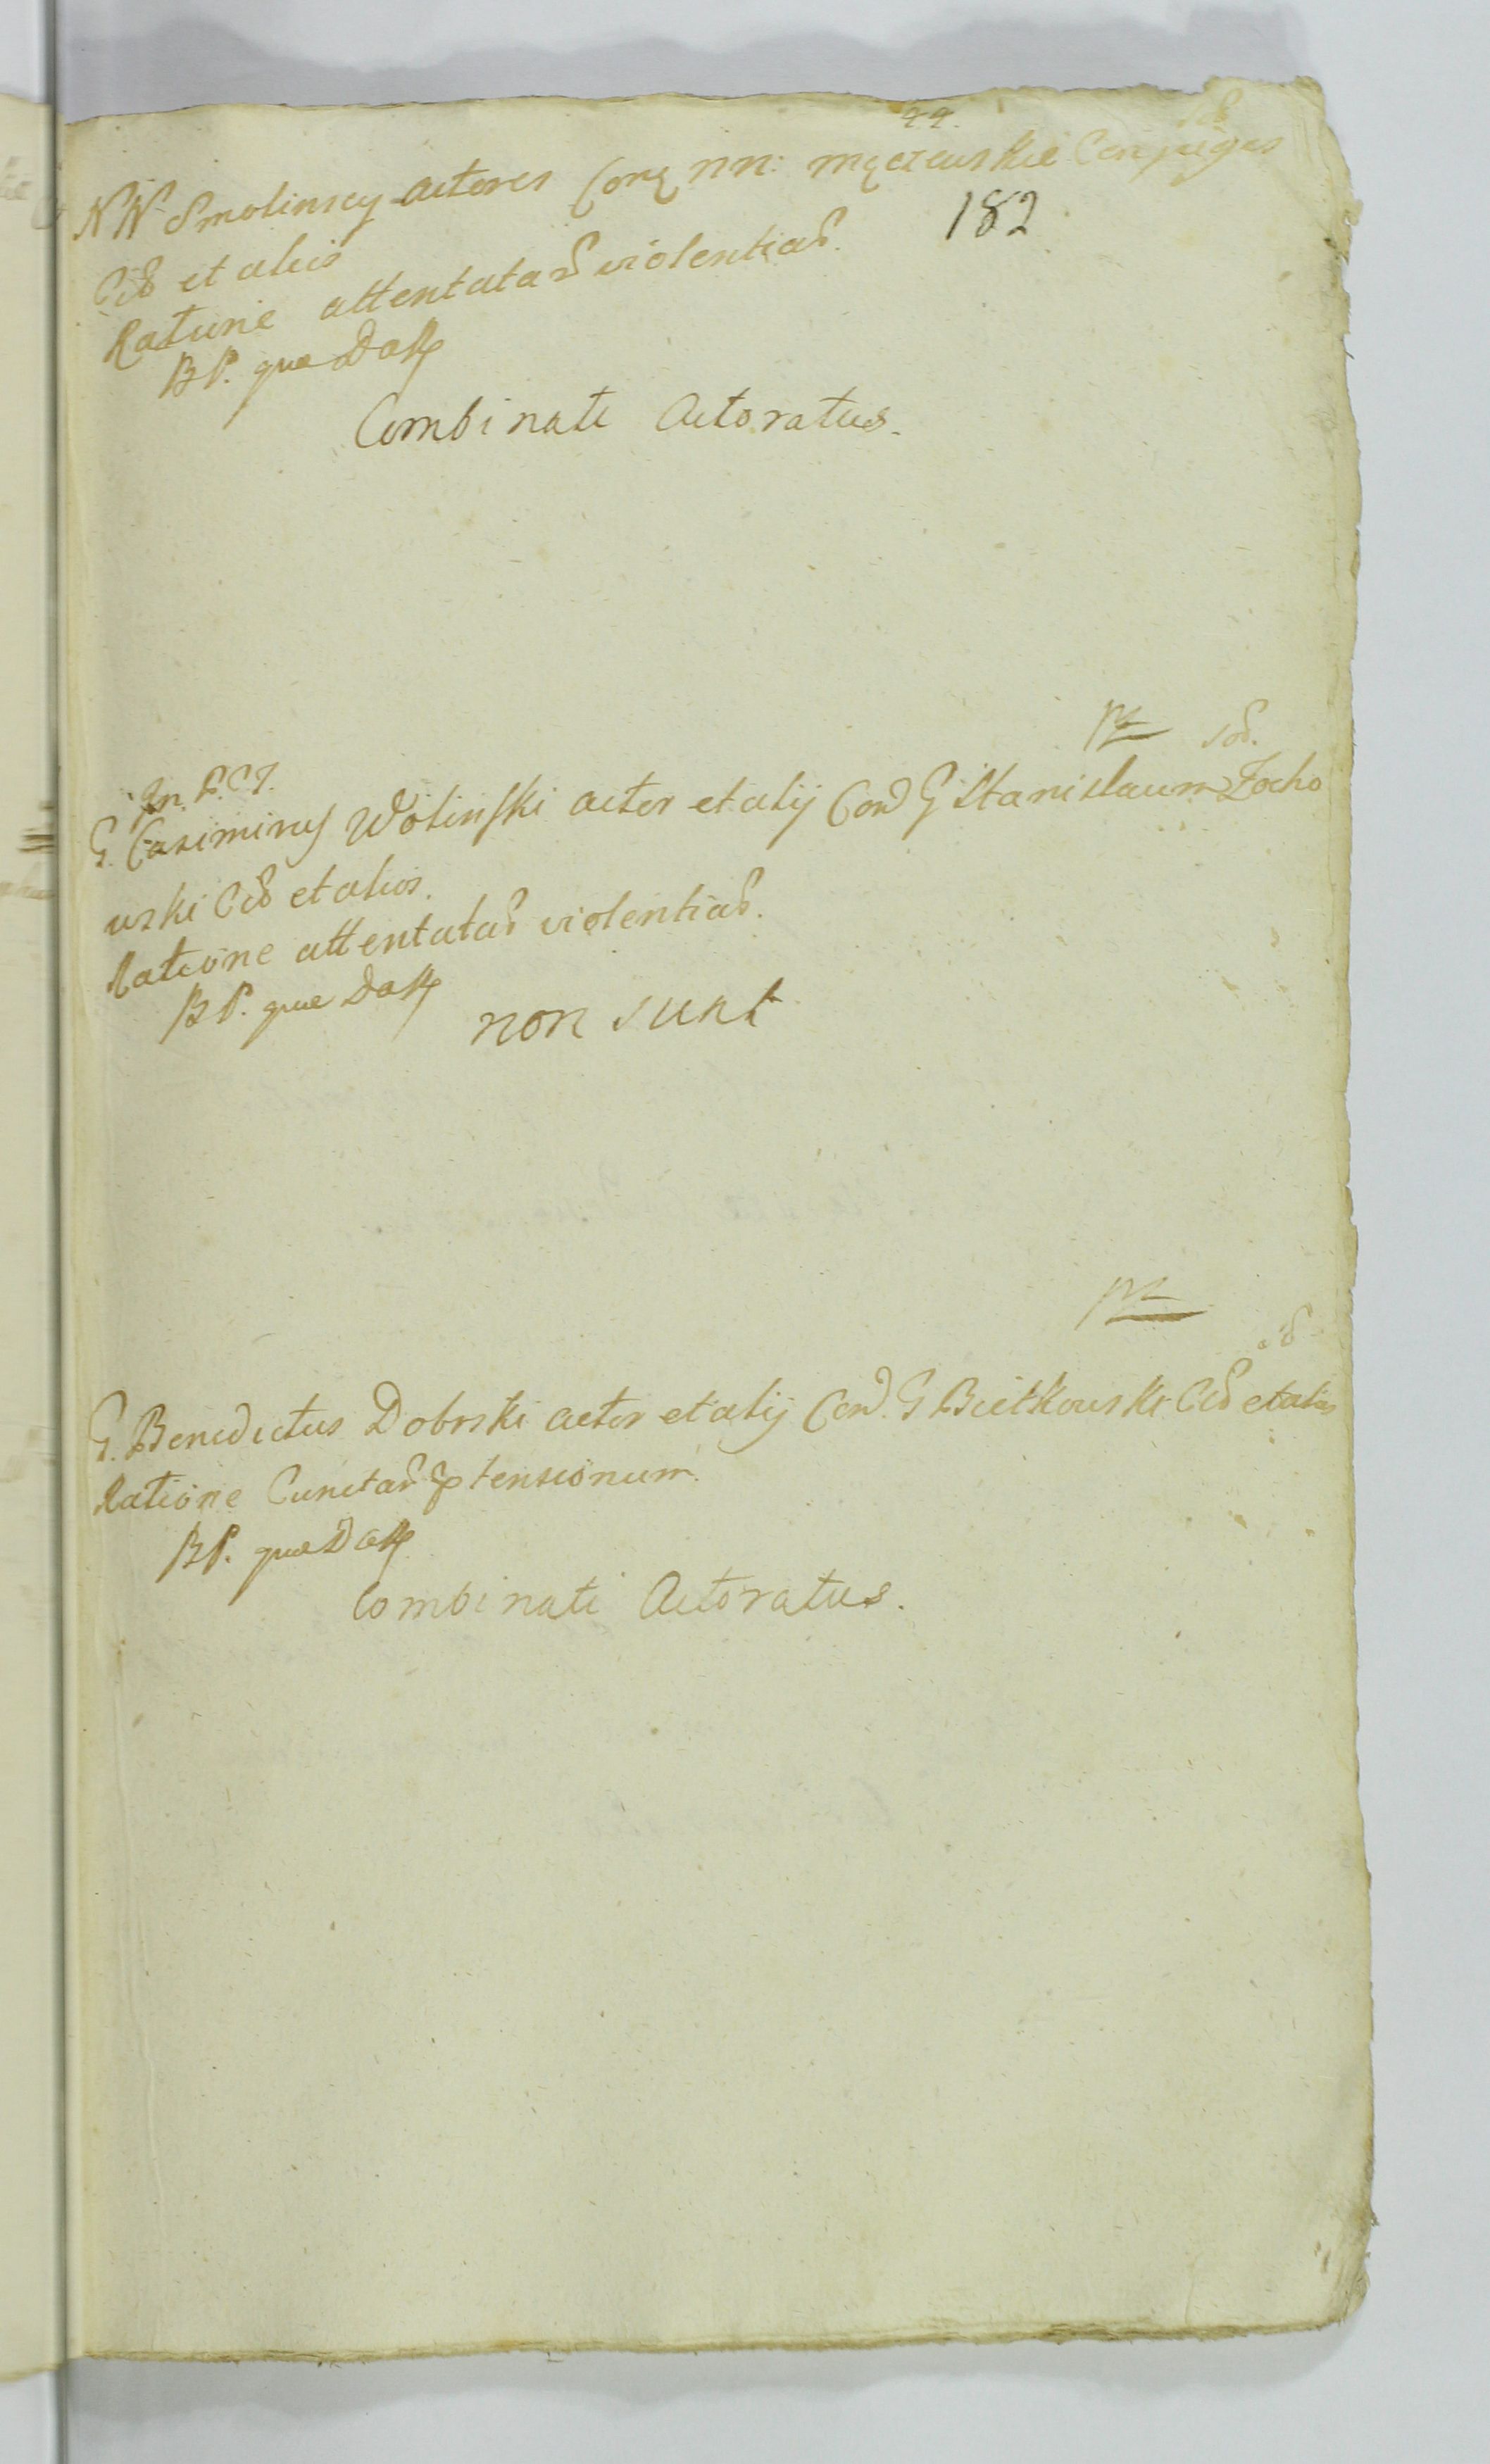 44.
NN Smolinscy actores Con̄ nn: Męczeuskie Conjuges
182
Cit et aliis
Ratione attentatar̃ violentiar̃.
BP. quæ Dat̃
Combinati Actoratus.
In. F. C I.
G. Casimirus Wolinski actor et alij Con̄ G Stanislaum Zocho
uski Cit et alios.
Ratione attentatar̃ violentiar̃.
BP. quæ Dat̃
non sunt
G. Benedictus Dobrski actor et alij Con̄. G Bietkouski Cit et alios
Ratione Cunctar̃ p̄tensionum.
BP. quæ Dat̃
Combinati Actoratus.